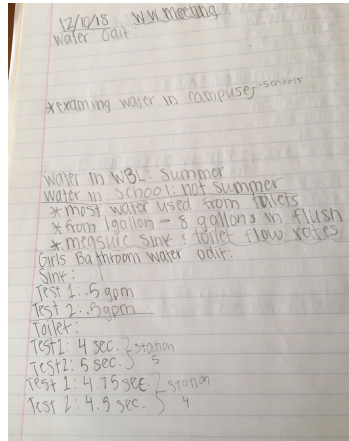 12/10/18 WW meeting
Water Odit:
*examing water in campuses-schools
Water in WBL: Summer
Water in school: not summer
*most water used from toilets
*from 1gallon - 8 gallons in flush
*measure sink & toilet flow rates
Girls Bathroom water odit:
Sink:
Test 1: .5 gpm
Test 2: .5gpm
Toilet:
Test1: 4 sec. } station
Test2: 5 sec. } 5
Test 1: 4.75 sec. } station
Test 2: 4.5 sec. } 4